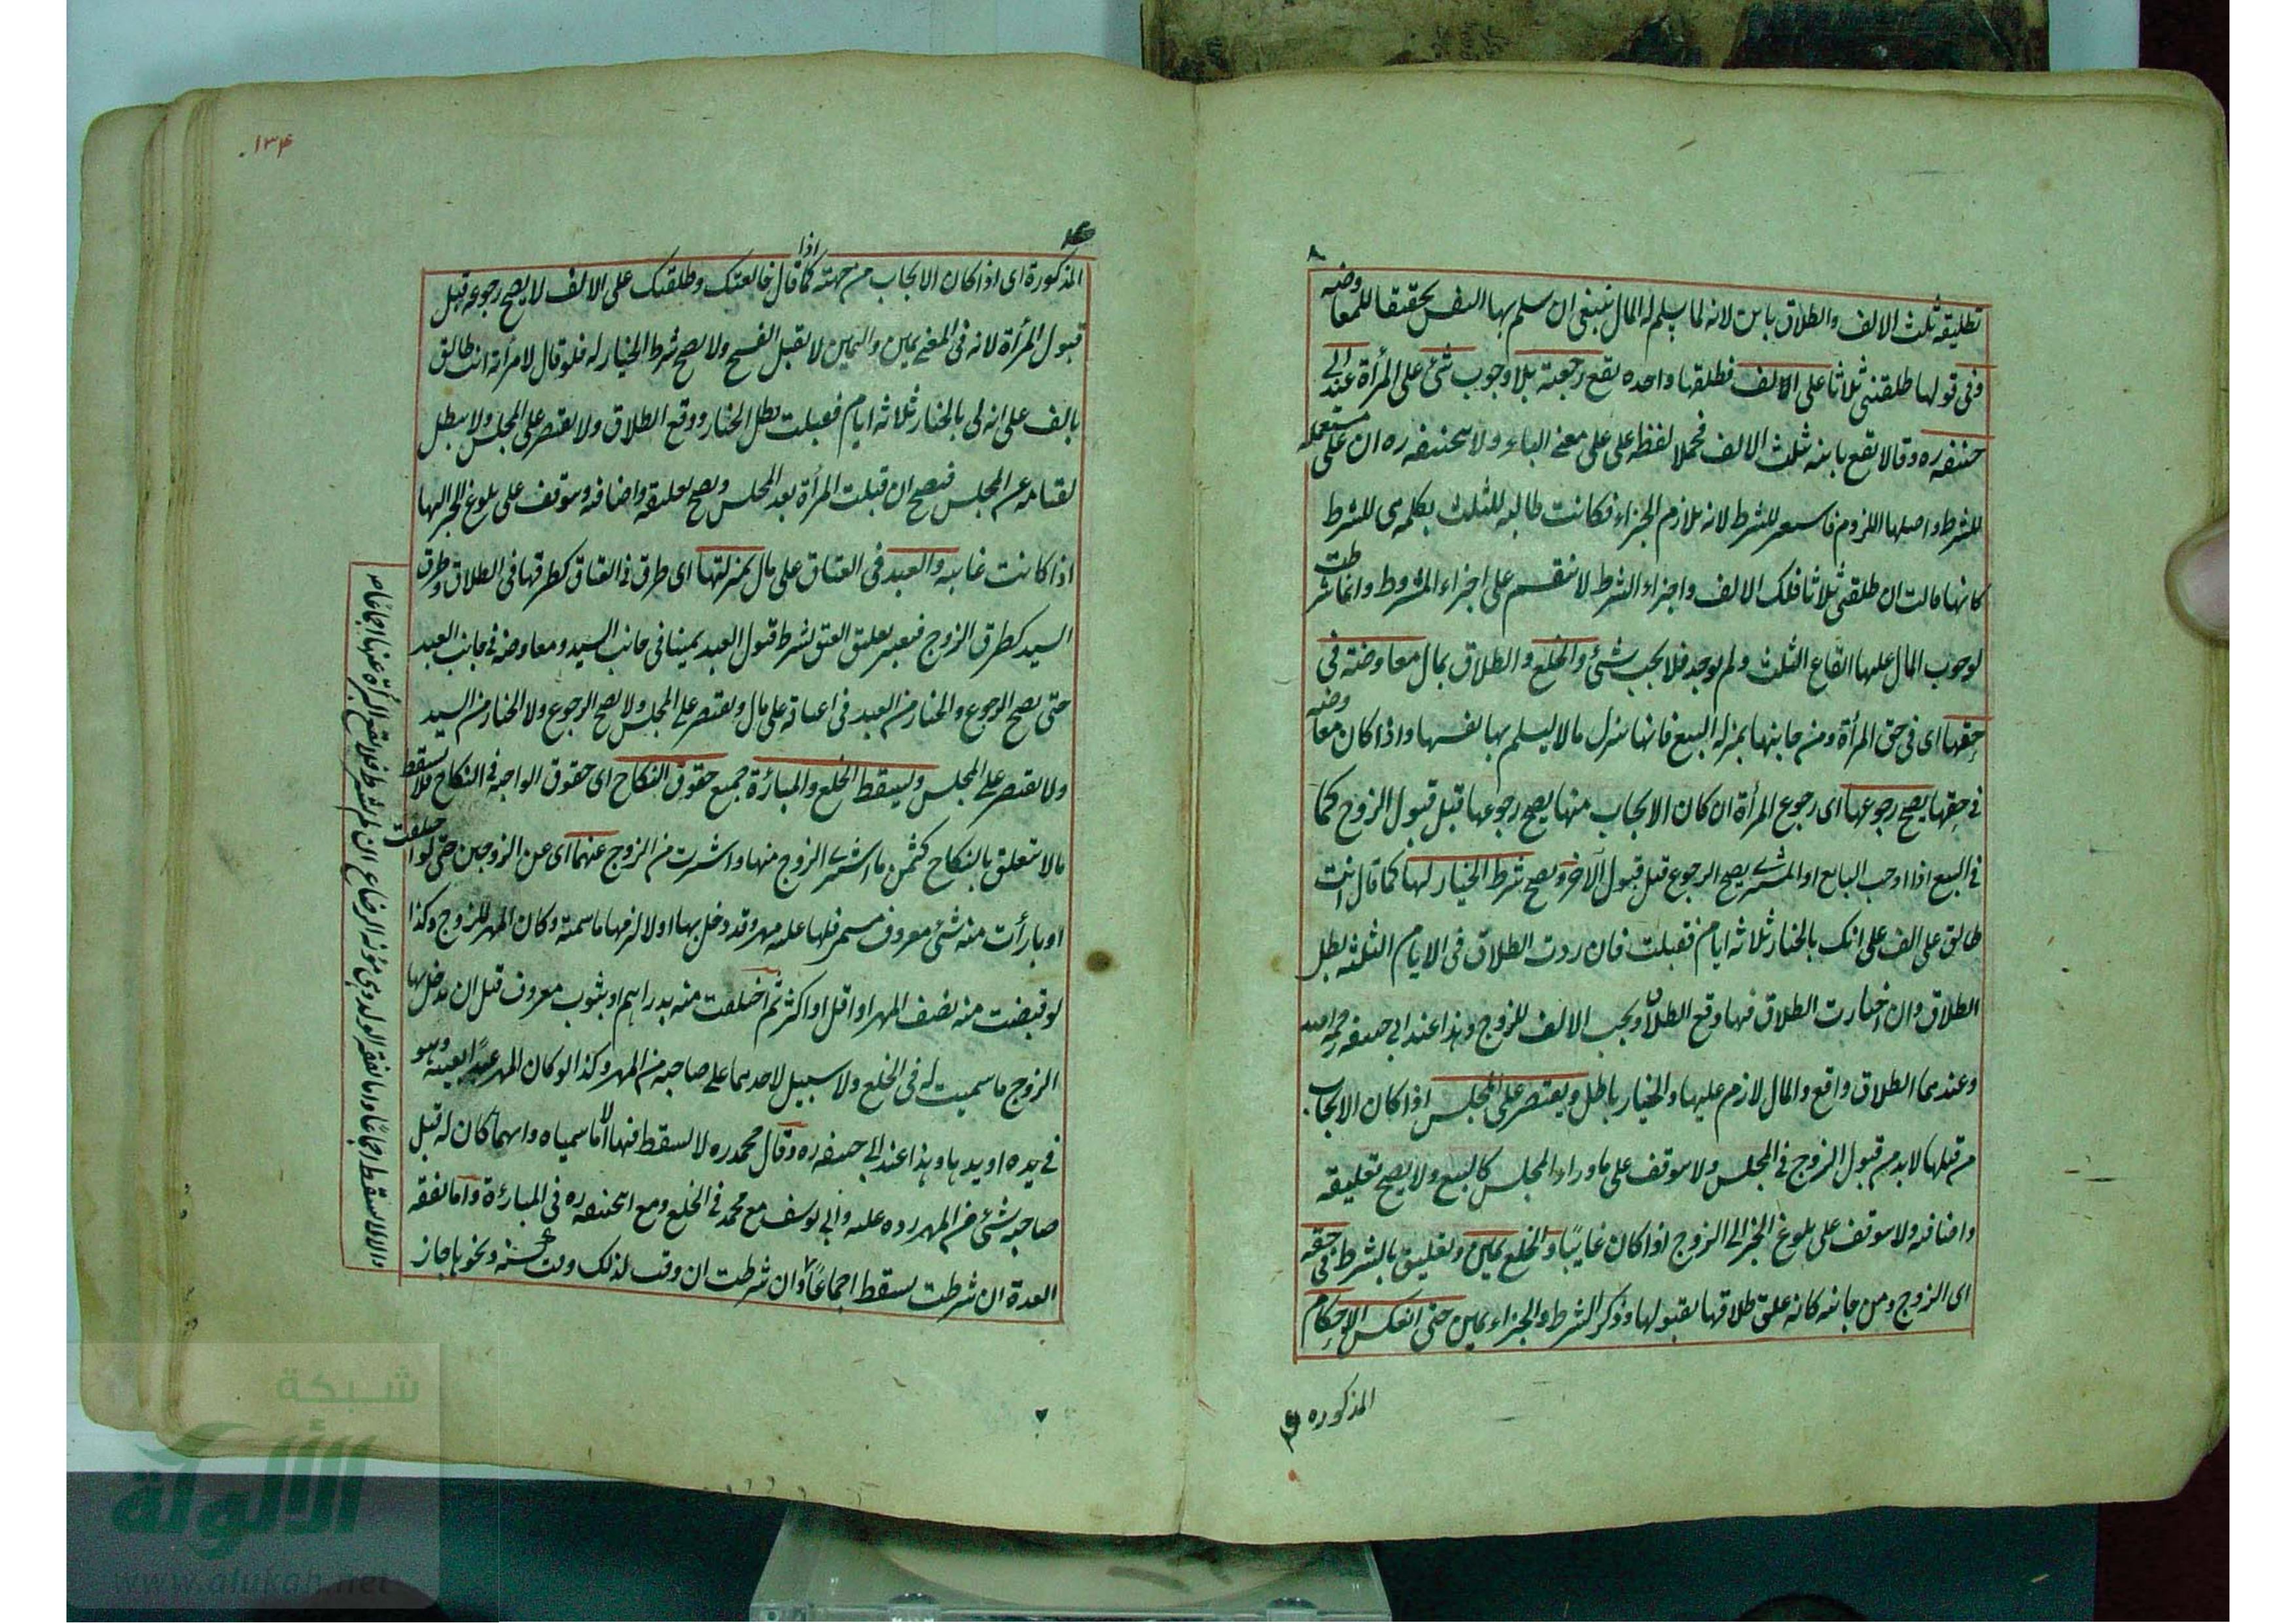 تطليقه ثلث الالف والطلاق باين لانه لما يسلم له المال ينبغي ان سلم بها النفس تحقيقا للمعاوضه
وفي قولها طلقني ثلاثا على الالف فطلقها واحده يقع رجعية بلا وجوب شئ على المرأة عند ابي
حنيفه ره وقالا تقع باينه ثلث الالف فحملا لفظه على على معنى الباء ولابيحنيفه ره ان على مستعمله
للشرط واصلها اللزوم فاستعير للشرط لانه يلازم الجزاء فكانت طالبه للثلث بكلمه هي للشرط
كانها قالت ان طلقتني ثلاثا فلك الالف واجزاء الشرط لا ينقسم على اجزاء المشروط وانما شرطت
لوجوب المال عليها ايقاع الثلث ولم يوجد فلا يجب شئ والخلع والطلاق بمال معاوضة في
حقها اى في حق المرأة ومن جانبها بمنزله البيع فانها تبذل مالا ليسلم بها نفسها واذا كان معاوضه
في حقها يصح رجوعها اى رجوع المرأة ان كان الايجاب منها يصح رجوعها قبل قبول الزوج كما
في البيع اذا اوجب البايع او المشترى يصح الرجوع قبل قبول الآخر ويصح شرط الخيار لها كما قال انت
طالق على الف على انك بالخيار ثلاثه ايام فقبلت فان ردت الطلاق في الايام الثلثه بطل
الطلاق وان اختارت الطلاق فيها وقع الطلاق ويجب الالف للزوج وهذا عند ابي حنيفه رحمه الله
وعندهما الطلاق واقع والمال لازم عليها والخيار باطل ويقتصر على المجلس اذا كان الايجاب
من قبلها لابد من قبول الزوج في المجلس ولا يتوقف على ما وراء المجلس كالبيع ولا يصح تعليقه
واضافته ولا يتوقف على بلوغ الخبر الى الزوج اذا كان غايبا والخلع يمين وتعليق بالشرط في حقه
اى الزوج ومن جانبه كانه علق طلاقها بقبولها وذكر الشرط والجزاء يمين حتى انعكس الاحكام
المذكوره
١٣٤
المذكورة اى اذا كان الايجاب من جهته كما اذا قال خالعتك وطلقتك على الالف لا يصح رجوعه قبل
قبول المرأة لانه في المعنى يمين واليمين لا تقبل الفسخ ولا يصح شرط الخيار له فلو قال لامرأته انت طالق
بالف على انه لى بالخيار ثلاثه ايام فقبلت بطل الخيار ووقع الطلاق ولا يقتصر على المجلس ولا يبطل
بقيامه عن المجلس فيصح ان قبلت المرأة بعد المجلس ويصح تعليقه واضافته ويتوقف على بلوغ الخبر اليها
اذا كانت غايبه والعبد في العتاق على مال بمنزلتها اى طرفه في العتاق كطرفها في الطلاق وطرف
السيد كطرف الزوج فيعتبر تعليق العتق بشرط قبول العبد يمينا في جانب السيد ومعاوضه في جانب العبد
حتى يصح الرجوع والخيار من العبد في اعتاقه على مال ويقتصر على المجلس ولا يصح الرجوع ولا الخيار من السيد
ولا يقتصر على المجلس ويسقط الخلع والمبارئة جميع حقوق النكاح اى حقوق الواجبه في النكاح فلا يسقط
مالا يتعلق بالنكاح كثمن ما اشترى الزوج منها واشترت من الزوج عنهما اى عن الزوجين حتى لو اختلعت
او بارأت منه بشئ معروف مسمى فلها عليه مهر وقد دخل بها اولا لزمها ما سمته وكان المهر للزوج وكذا
لو قبضت منه نصف المهر او اقل او اكثر ثم اختلعت منه بدراهم او بثوب معروف قبل ان يدخل بها
الزوج ما سميت له في الخلع ولا سبيل لاحدهما على صاحبه من المهر وكذا لو كان المهر عبدا بعينه وهو
في يده او يدها وهذا عند ابي حنيفه ره وقال محمد ره لا يسقط فيها الا ما سمياه وايهما كان له قبل
صاحبه شئ من المهر رده عليه وابي يوسف مع محمد في الخلع ومع ابيحنيفه ره في المبارءة واما نفقه
العدة ان شرطت يسقط اجماعا وان شرطت ان وقت لذلك وقت سنه ونحوها جاز
والا لا يسقط اجماعا واما نفقه الولد وهى مؤنه الرضاع ان لم يشرط فلا تقع البرأة عنها اجماعا
شبكة
الألوكة
www.alukah.net